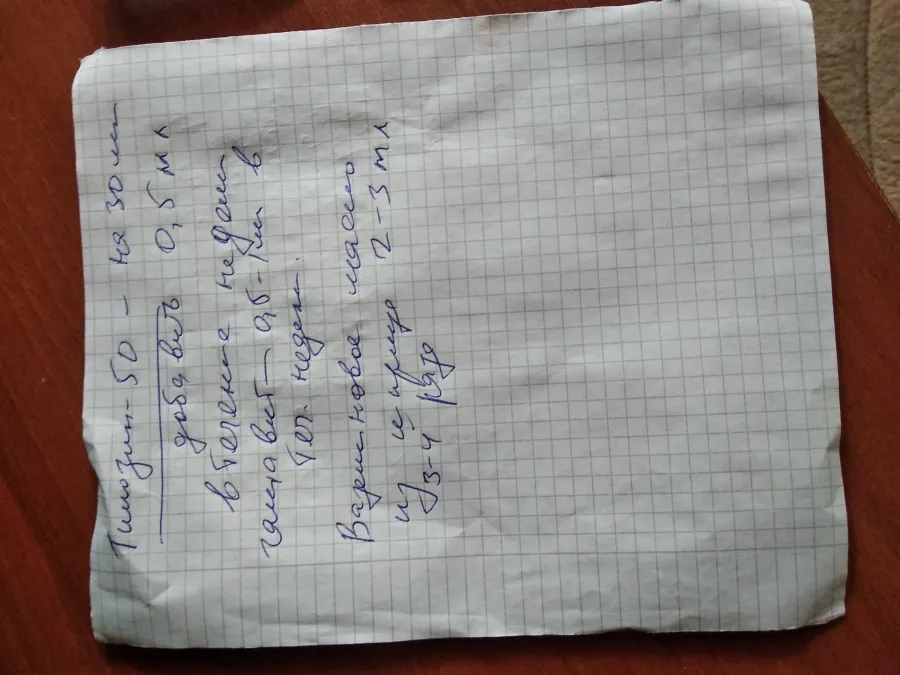 Тилозин-50 – на 30 мл
добавить 0,5 мл
в течение недели
гамавит – 0,5-1мл в
теч. недели.
Вазелиновое масло
из шприца 2-3 мл
3-4 раза